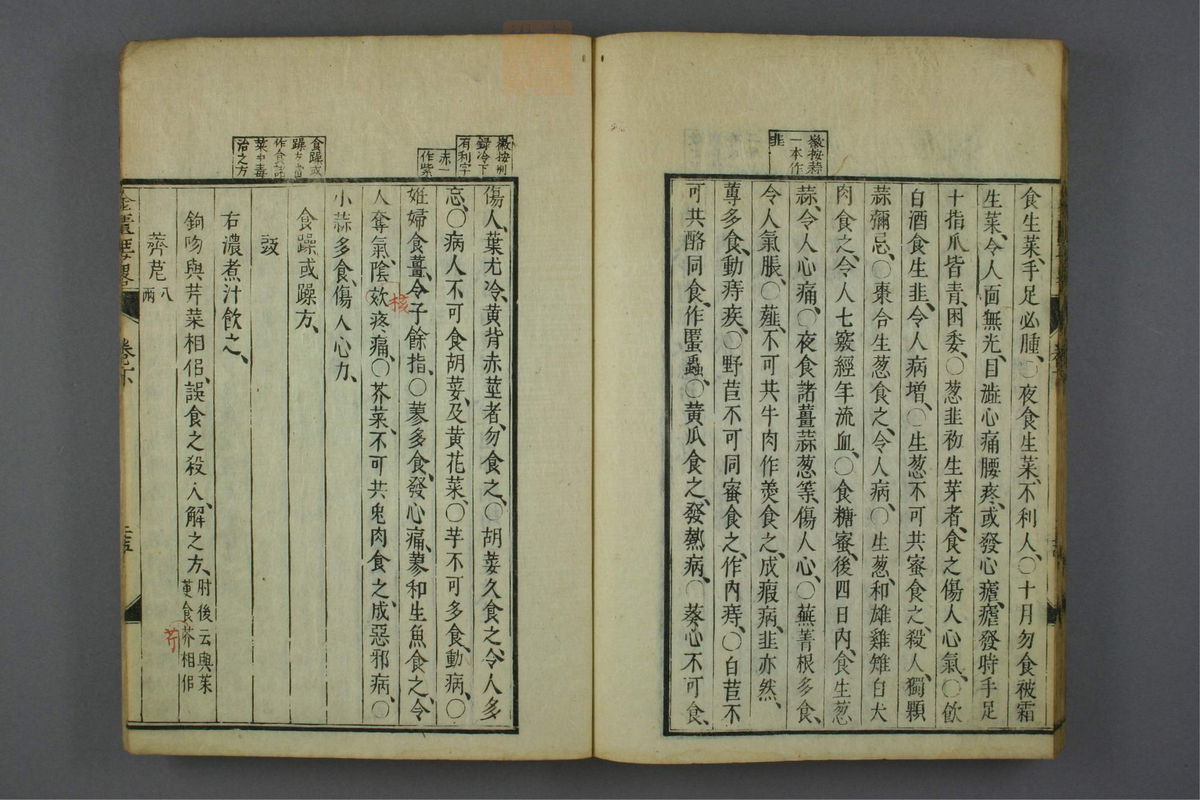 徽按蒜
一本作
韭
食生菜、手足必腫、〇夜食生菜、不利人、〇十月勿食被霜
生菜、令人面無光、目澁心痛腰疼、或發心瘧、瘧發時手足
十指爪皆青、困委、〇葱韭初生芽者、食之傷人心氣、〇飲
白酒食生韭、令人病增、〇生葱不可共蜜食之、殺人、獨顆
蒜彌忌、〇棗合生葱食之、令人病、〇生葱和雄雞雉白犬
肉食之、令人七竅經年流血、〇食糖蜜、後四日內、食生葱
蒜、令人心痛、〇夜食諸薑蒜葱等、傷人心、〇蕪菁根多食、
令人氣脹、〇薤不可共牛肉作羮食之、成瘕病、韭亦然、
蓴多食、動痔疾、〇野苣不可同蜜食之、作內痔、〇白苣不
可共酪同食、作䘌蟲、〇黄瓜食之、發熱病、〇葵心不可食、
徽按別
録冷下
有利字
赤一
作紫
傷人、葉尤冷、黄背赤莖者、勿食之、〇胡荽久食之、令人多
忘、〇病人不可食胡荽、及黄花菜、〇芋不可多食、動病、〇
妊婦食薑、令子餘指、〇蓼多食、發心痛、蓼和生魚食之、令
人奪氣、陰欬疼痛、〇芥菜不可共兎肉食之、成惡邪病、〇
核
小蒜多食、傷人心力、
食躁或
作食諸
菜中毒
治之方
食躁或躁方、
豉
右濃煮汁飲之、
鉤吻與芹菜相佀、誤食之殺人、解之方、肘後云與茱
萸食芥相佀
芹
薺苨八兩
金匱要畧
卷下